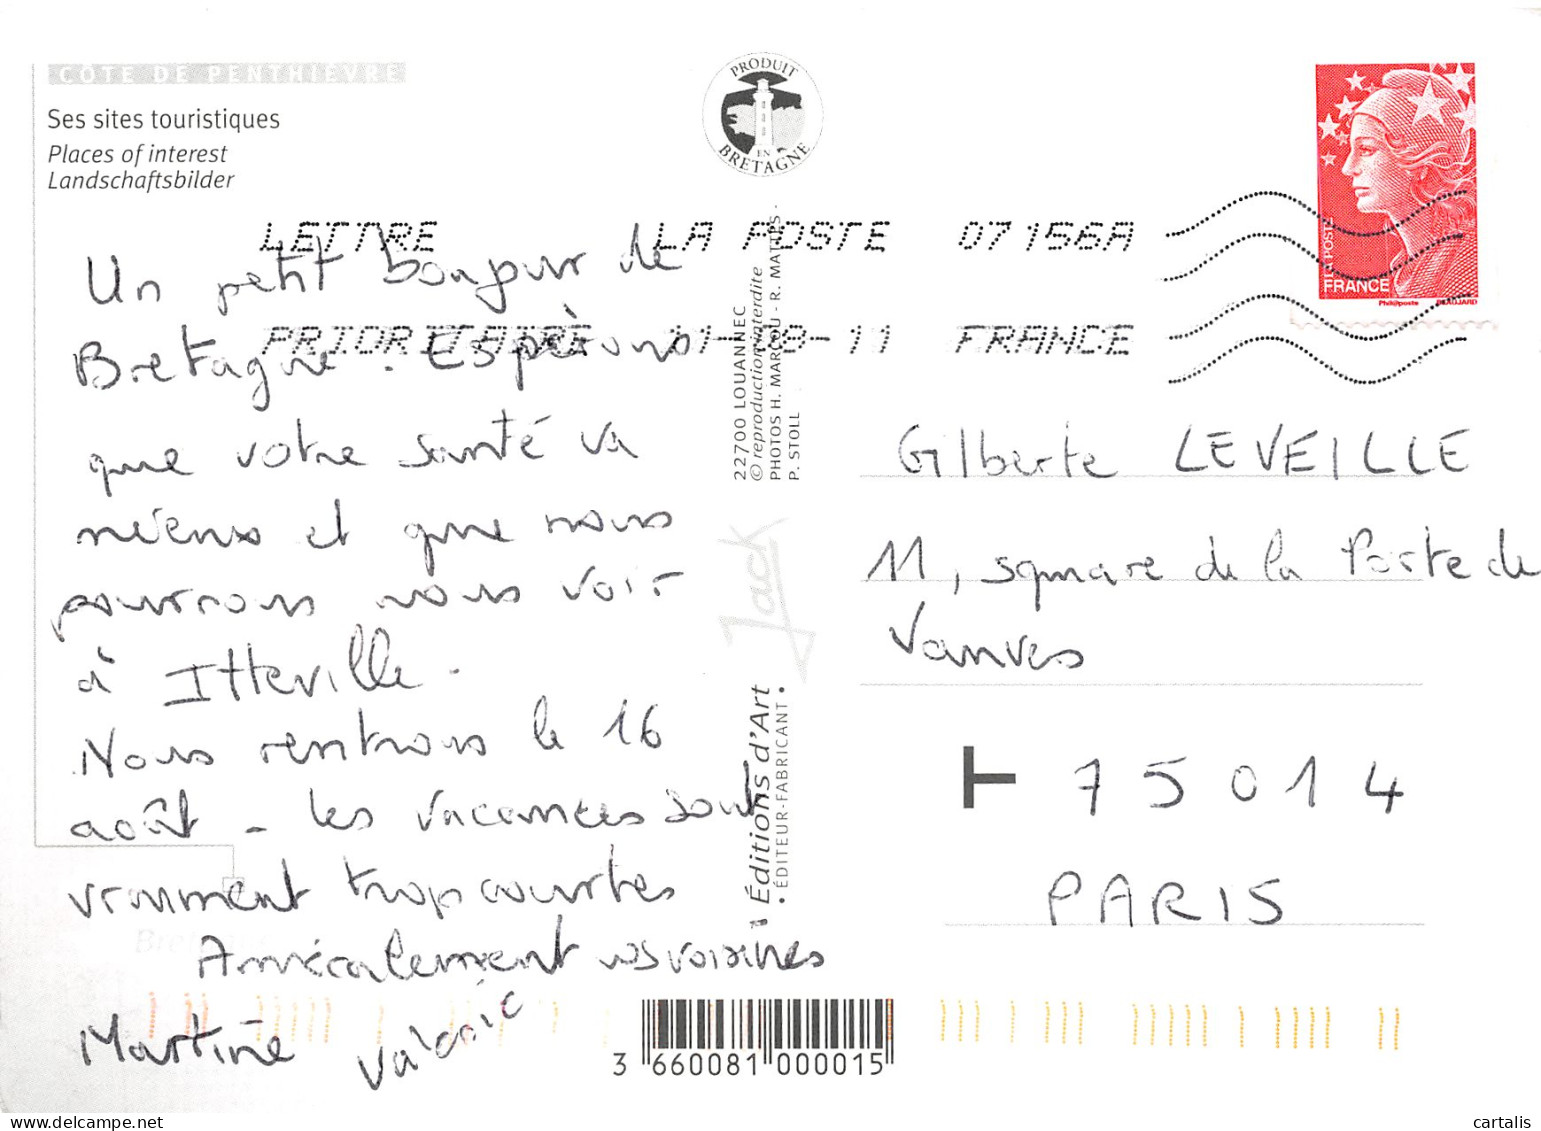 CÔTE DE PENTHIÈVRE
Ses sites touristiques
Places of interest
Landschaftsbilder
PRODUIT
EN
BRETAGNE
LETTRE LA POSTE 07156A
PRIORITAIRE 11-08-11 FRANCE
LA POSTE
FRANCE
Phil@poste BEAUJARD
Un petit bonjour de
Bretagne. Espérons
que votre santé va
mieux et que nous
pourrons nous voir
à Itteville.
Nous rentrons le 16
août - les vacances sont
vraiment trop courtes
Amicalement vos voisines
Martine Valérie
22700 LOUANNEC
© reproduction interdite
PHOTOS H. MARCOU - R. MATTES -
P. STOLL
Jack
Éditions d'Art
• ÉDITEUR-FABRICANT •
Gilberte LEVEILLE
11, square de la Porte de
Vanves
75014
PARIS
3 660081 000015
cartalis